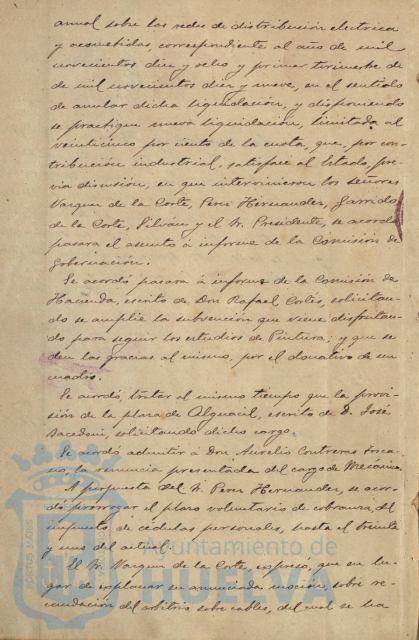 anual sobre las redes de distribución eléctrica
y acometidas, correspondiente al año de mil
novecientos diez y ocho y primer trimestre de
de mil novecientos diez y nueve, en el sentido
de anular dicha liquidación, y disponiendo
se practique nueva liquidación, limitada al
veinticinco por ciento de la cuota, que, por con-
tribución industrial, satisface al Estado, pre-
via discusión, en que intervinieron los señores
Vazquez de la Corte, Perez Hernandez, Garrido
de la Corte, Silván y el Sr. Presidente, se acordó
pasara el asunto á informe de la Comisión de
Gobernación.
Se acordó pasara á informe de la Comisión de
Hacienda, escrito de Don Rafael Cortés, solicitan-
do se amplíe la subvención que viene disfrutan-
do para seguir los estudios de Pintura; y que se
den las gracias al mismo, por el donativo de un
cuadro.
Se acordó, tratar al mismo tiempo que la provi-
sión de la plaza de Alguacil, escrito de D. José
solicitando dicho cargo.
Se acordó admitir á Don Aurelio Contreras
la renuncia presentada del cargo de Mecánico.
A propuesta del Sr. Perez Hernandez, se acor-
dó prorrogar el plazo voluntario de cobranza del
impuesto de cédulas personales, hasta el treinta
y uno del actual.
El Sr. Vazquez de la Corte, expresó, que en lu-
gar de explanar su anunciada moción, sobre re-
caudación del arbitrio sobre cables, del cual se ha
Ayuntamiento de
HUELVA
PORTUS MARIS